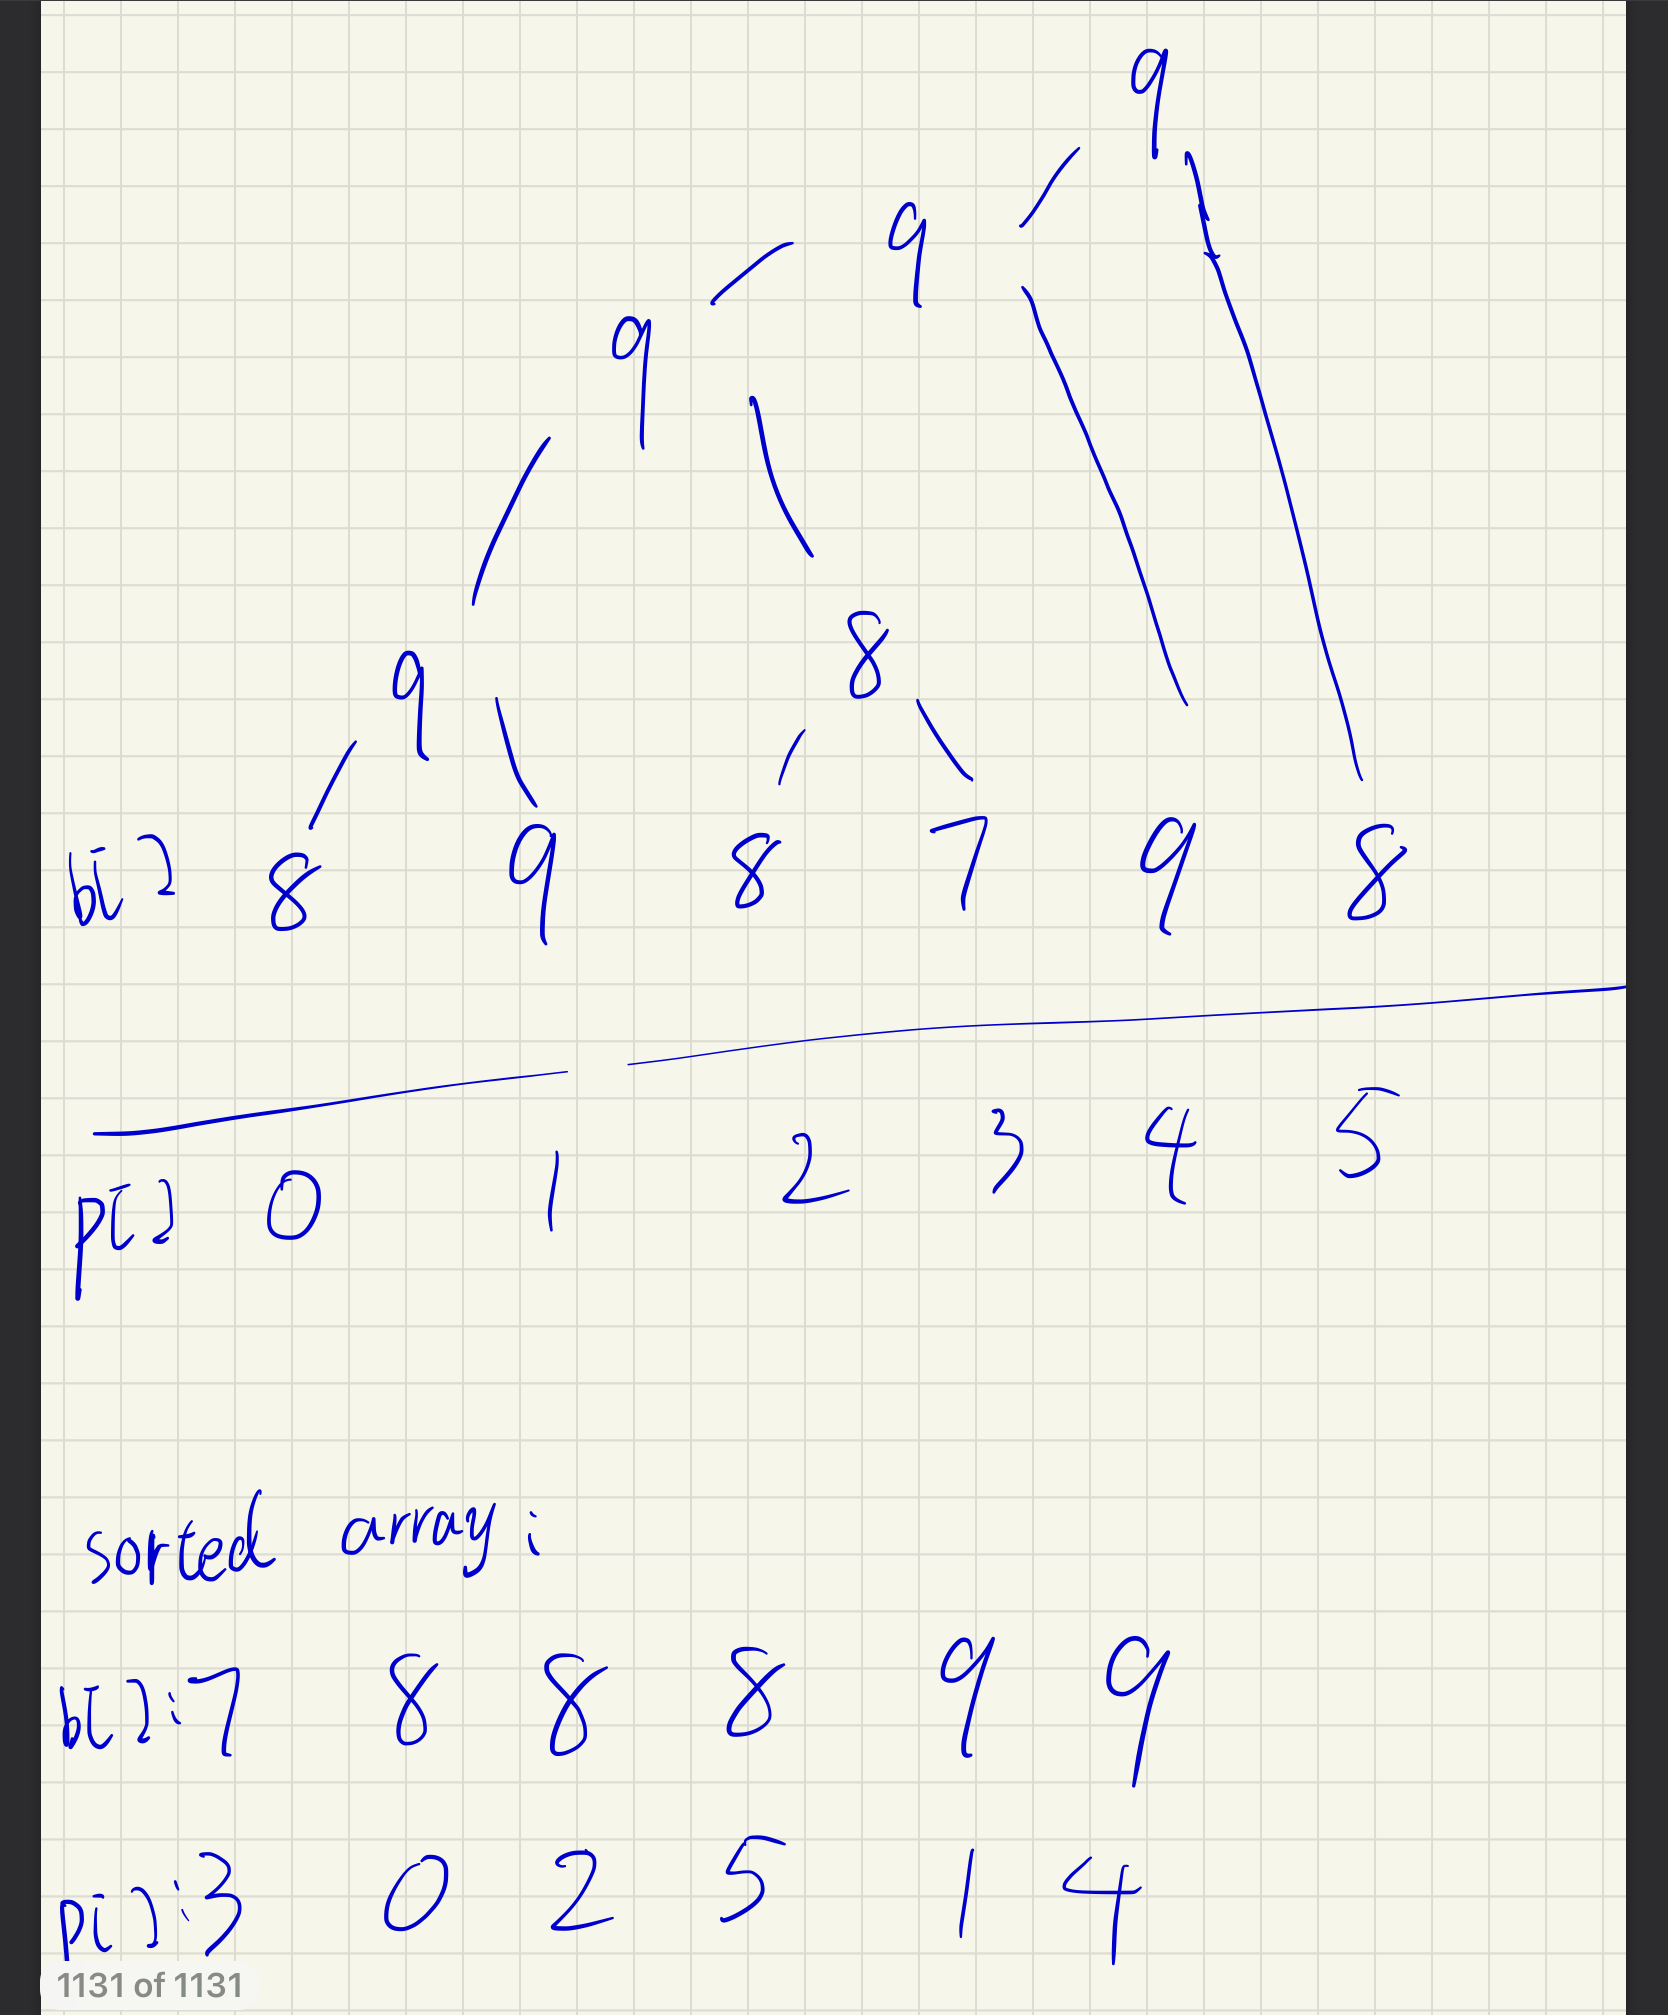 9
9
9
9 8
b[] 8 9 8 7 9 8
p[] 0 1 2 3 4 5
sorted array:
b[]: 7 8 8 8 9 9
p[]: 3 0 2 5 1 4
1131 of 1131